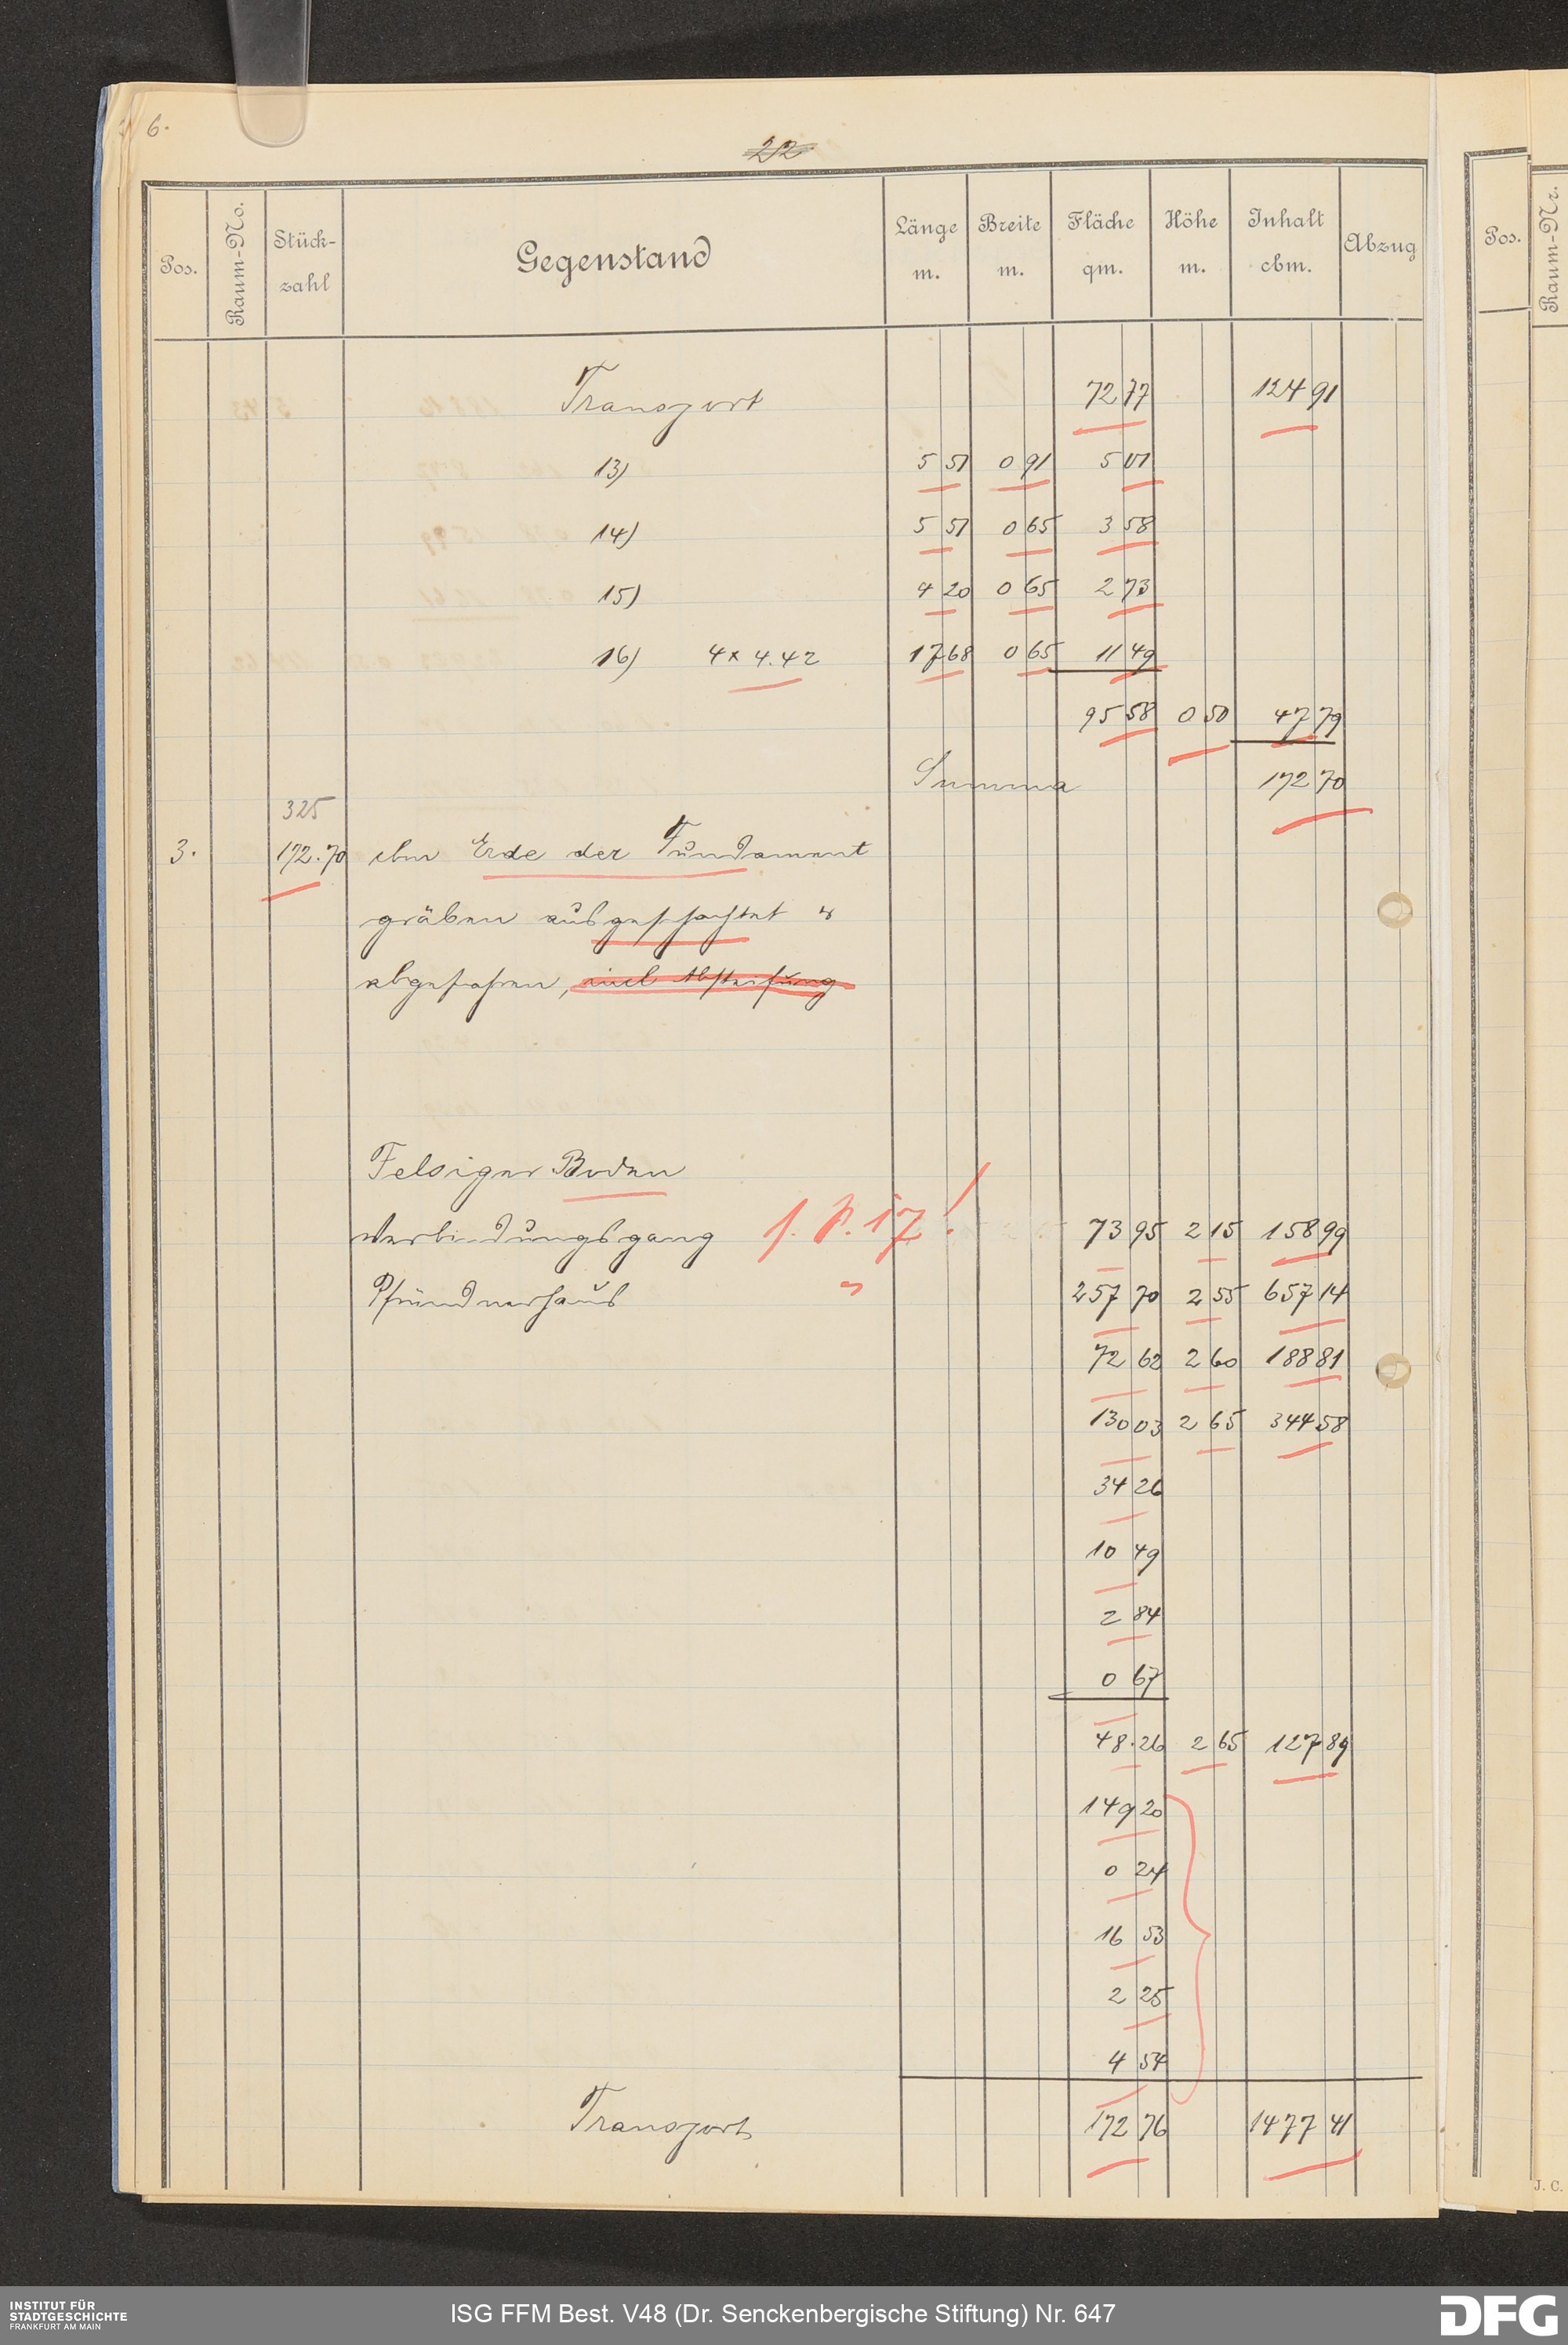 6.
22
Pos. Raum-No. Stück-zahl Gegenstand Länge m. Breite m. Fläche qm. Höhe m. Inhalt cbm. Abzug
Transport 72 77 124 91
13) 5 51 0 91 5 01
14) 5 51 0 65 3 58
15) 4 20 0 65 2 73
16) 4 x 4.42 17 68 0 65 11 49
95 58 0 50 47 79
Summa 172 70
325
3. 172.70 cbm Erde der Fundament
gräben ausgeschachtet u
abgefahren, incl Absteifung
Felsiger Boden
Verbindungsgang s. P. 17! 73 95 2 15 158 99
Pfründnerhaus " 257 70 2 55 657 14
72 62 2 60 188 81
130 03 2 65 344 58
34 26
10 49
2 84
0 67
48.26 2 65 127 89
149 20
0 24
16 53
2 25
4 54
Transport 172 76 1477 41
Pos. Raum-Nr.
J. C.
INSTITUT FÜR
STADTGESCHICHTE
FRANKFURT AM MAIN
ISG FFM Best. V48 (Dr. Senckenbergische Stiftung) Nr. 647
DFG